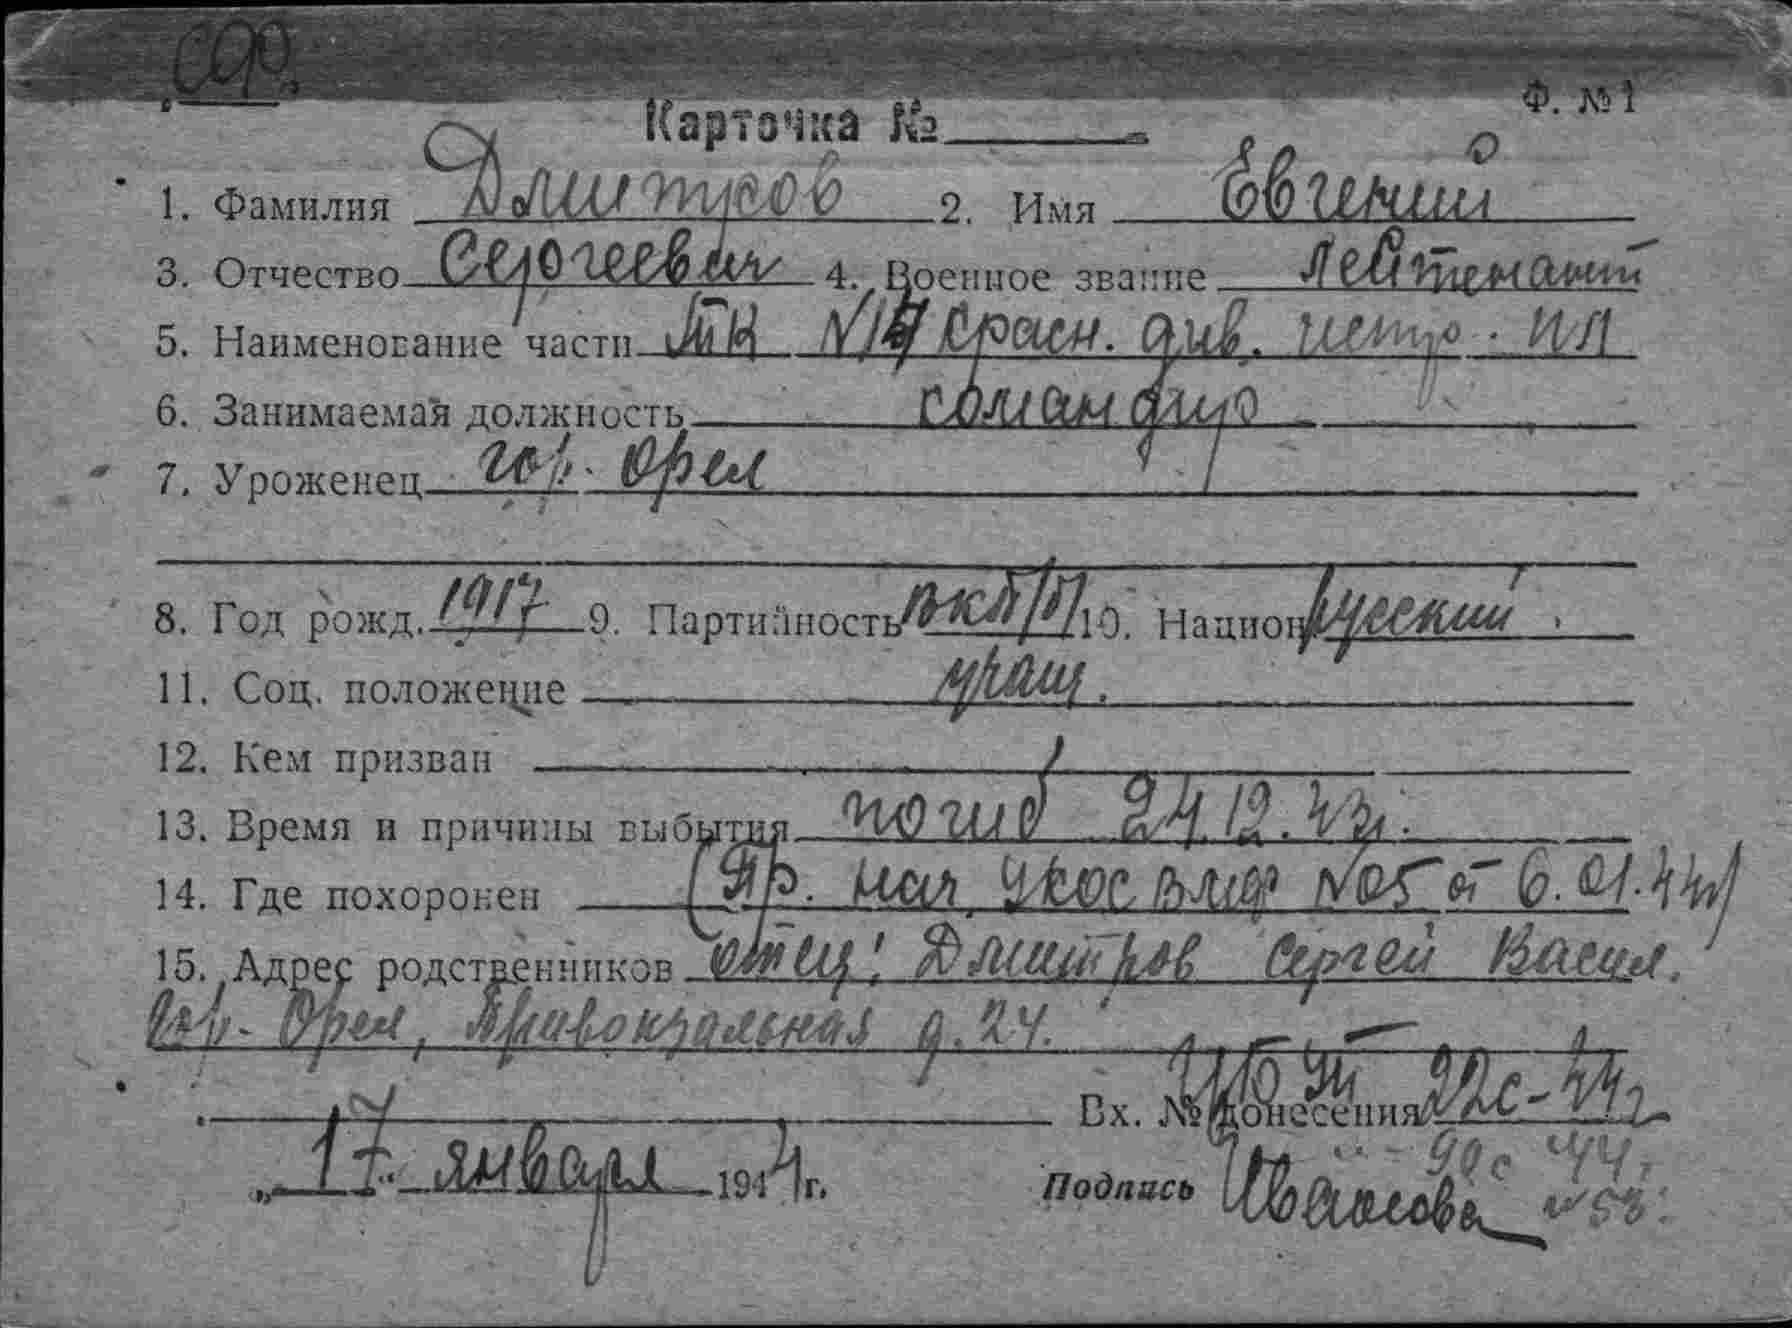 Ф. №1
Карточка №
1. Фамилия Дмитров 2. Имя Евгений
3. Отчество Сергеевич 4. Военное звание Лейтенант
5. Наименование части ТК № Красн. див. истр. ПЛ
6. Занимаемая должность командир
7. Уроженец гор. Орел
8. Год рожд. 1917 9. Партийность ВКП/б/ 10. Национ. русский
11. Соц. положение учащ.
12. Кем призван
13. Время и причины выбытия погиб 24.12.43г.
14. Где похоронен (Пр. нач. УКОС ВМФ №05 от 6.01.44г)
15. Адрес родственников отец: Дмитров Сергей Васил.
гор. Орел, Привокзальная д. 24.
Вх. № донесения 22с-44г
90с 44г
„17" января 1944г. Подпись Иванова